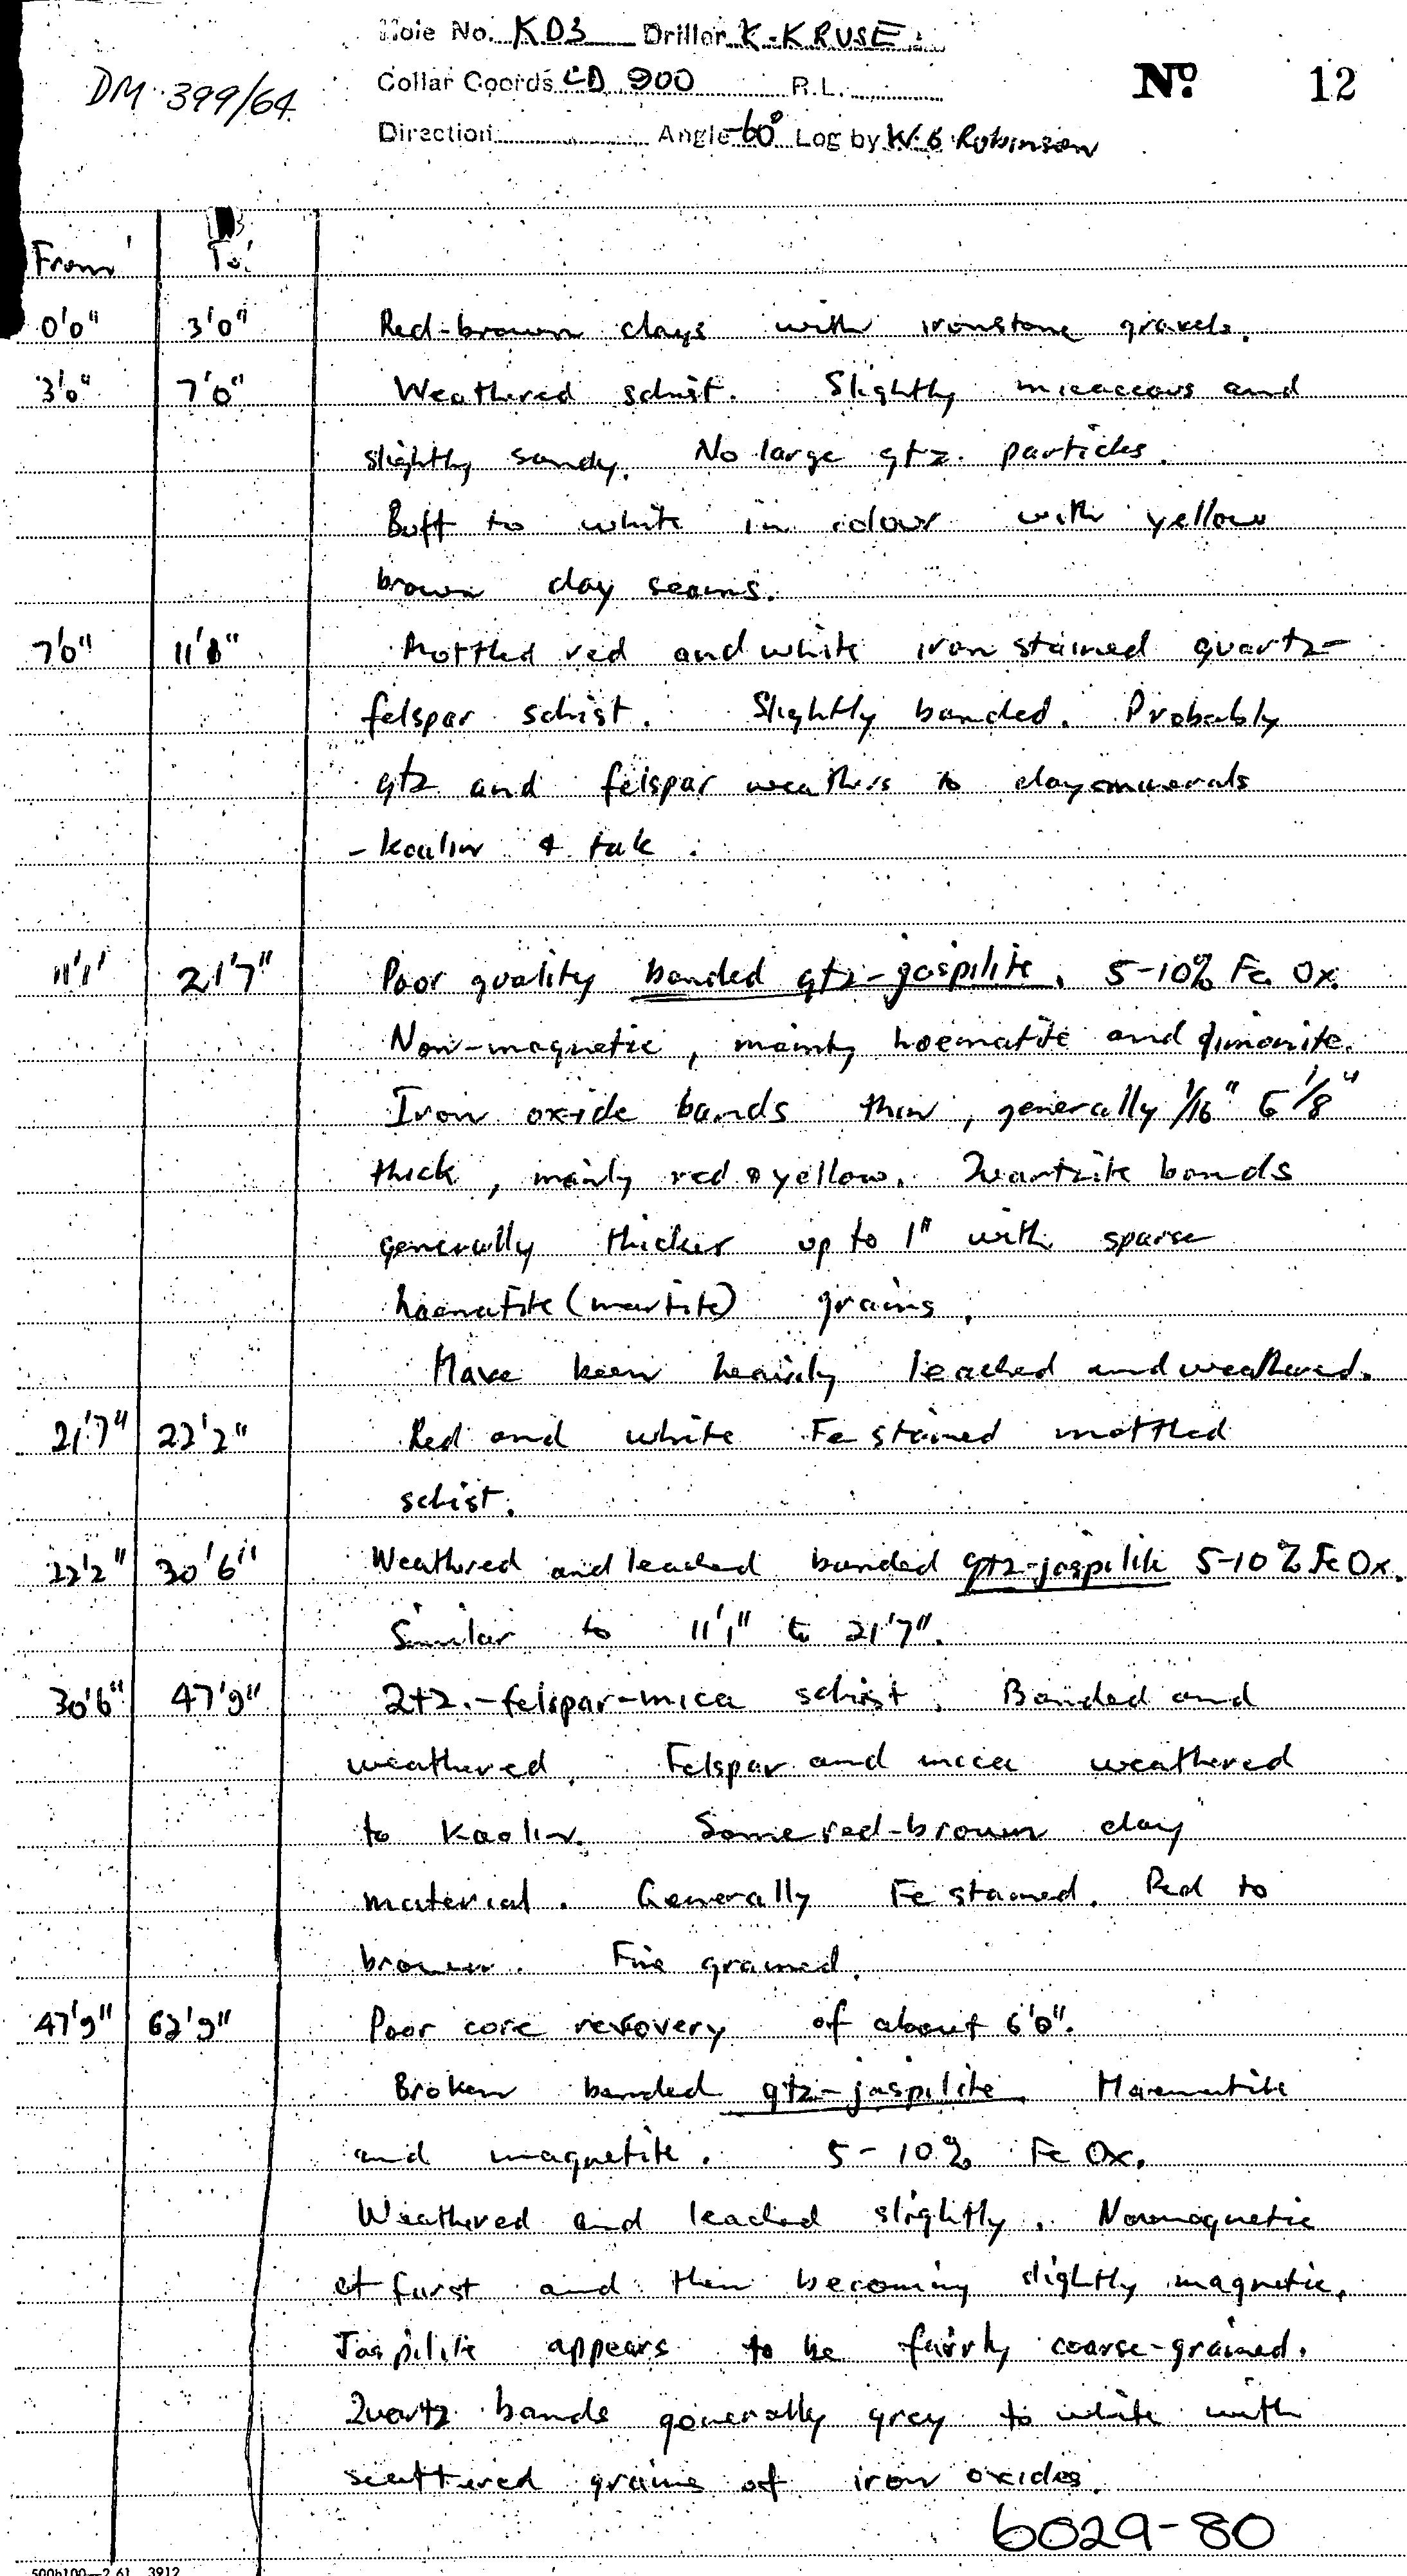 Hole No. KD3 Driller K. KRUSE
Collar Coords CD 900 R.L.
DM 399/64
No. 12
Direction Angle -60° Log by W.B. Robinson
From To
0'0" 3'0" Red-brown clays with ironstone gravels.
3'0" 7'0" Weathered schist. Slightly micaceous and
slightly sandy. No large qtz. particles.
Buff to white in colour with yellow
brown clay seams.
7'0" 11'1" Mottled red and white iron stained quartz-
felspar schist. Slightly banded. Probably
qtz and felspar weathers to clay minerals
- Kaolin & talc.
11'1" 21'7" Poor quality banded qtz-jaspilite. 5-10% Fe. Ox.
Non-magnetic, mainly haematite and limonite.
Iron oxide bands thin, generally 1/16" to 1/8"
thick, mainly red & yellow. Quartzite bands
generally thicker up to 1" with sparse
haematite (martite) grains.
Have been heavily leached and weathered.
21'7" 22'2" Red and white Fe stained mottled
schist.
22'2" 30'6" Weathered and leached banded qtz-jaspilite 5-10% Fe Ox.
Similar to 11'1" to 21'7".
30'6" 47'9" Qtz.-felspar-mica schist. Banded and
weathered. Felspar and mica weathered
to Kaolin. Some red-brown clay
material. Generally Fe stained. Red to
brown. Fine grained.
47'9" 62'9" Poor core recovery of about 6'0".
Broken banded qtz-jaspilite. Haematite
and magnetite. 5-10% Fe Ox.
Weathered and leached slightly. Nonmagnetic
at first and then becoming slightly magnetic.
Jaspilite appears to be fairly coarse-grained.
Quartz bands generally grey to white with
scattered grains of iron oxides.
6029-80
500b100—2.61 3912